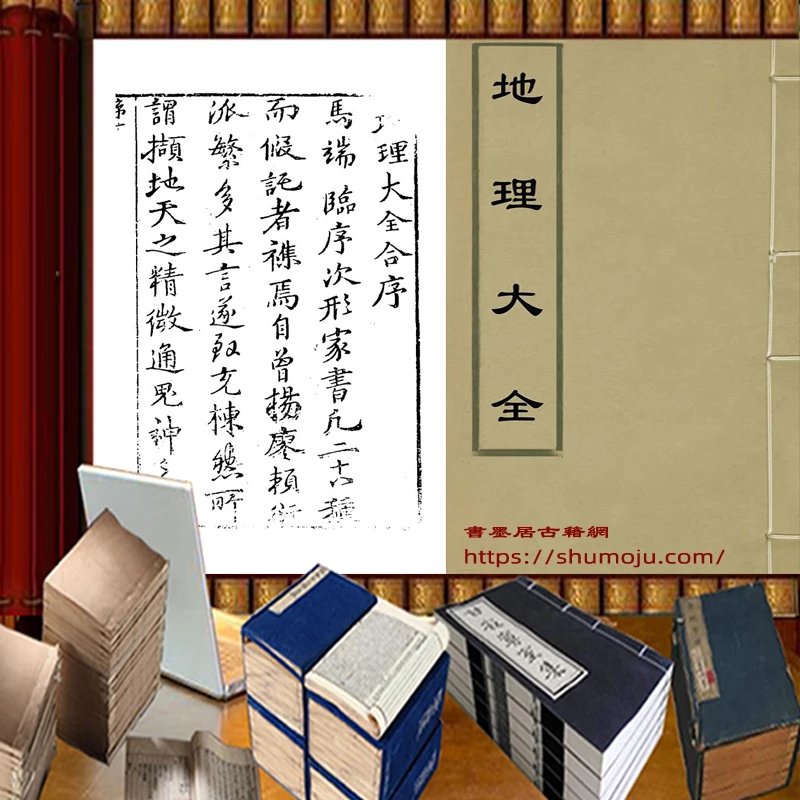 理大全合序
馬端臨序次形家書凡二十八種
而假託者襍焉自曾楊廖賴衍
派繁多其言遂致充棟然所
謂擷地天之精微通鬼神
地理大全
書墨居古藉網
https://shumoju.com/